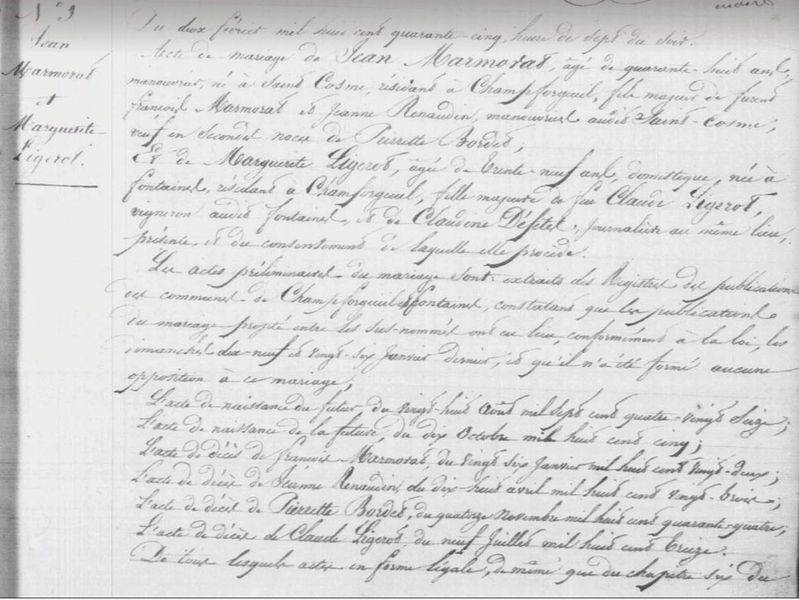 N° 3
Jean
Marmorat
et
Marguerite
Ligerot.
Du deux février mil huit cent quarante-cinq, heure de sept du soir.
Acte de mariage de Jean Marmorat, âgé de quarante-huit ans,
manouvrier, né à Saint Cosme, résidant à Champforgueil, fils majeur de furent
françois Marmorat et Jeanne Renaudin, manouvriers audit Saint-Cosme,
veuf en secondes noces de Pierrette Bordet,
Et de Marguerite Ligerot, âgée de trente-neuf ans, domestique, née à
fontaines, résidant à Champforgueil, fille majeure de feu Claude Ligerot,
vigneron audit fontaines, et de Claudine Défetes, journalière au même lieu,
présente et du consentement de laquelle elle procède.
Les actes préliminaires du mariage sont: extraits des Registres des publications
des communes de Champforgueil et fontaines, constatant que les publications
du mariage projeté entre les sus-nommés ont eu lieu, conformément à la loi, les
dimanches dix-neuf et vingt-six Janvier dernier, et qu'il n'a été formé aucune
opposition à ce mariage;
L'acte de naissance du futur, du vingt-huit Août mil sept cent quatre-vingt seize;
L'acte de naissance de la future, du dix Octobre mil huit cent cinq;
L'acte de décès de françois Marmorat, du vingt six Janvier mil huit cent vingt-deux;
L'acte de décès de Jeanne Renaudin, du dix-huit avril mil huit cent vingt-trois;
L'acte de décès de Pierrette Bordet, du quatorze Novembre mil huit cent quarante-quatre;
L'acte de décès de Claude Ligerot, du neuf Juillet mil huit cent treize.
De tous lesquels actes en forme légale, de même que du chapitre six du